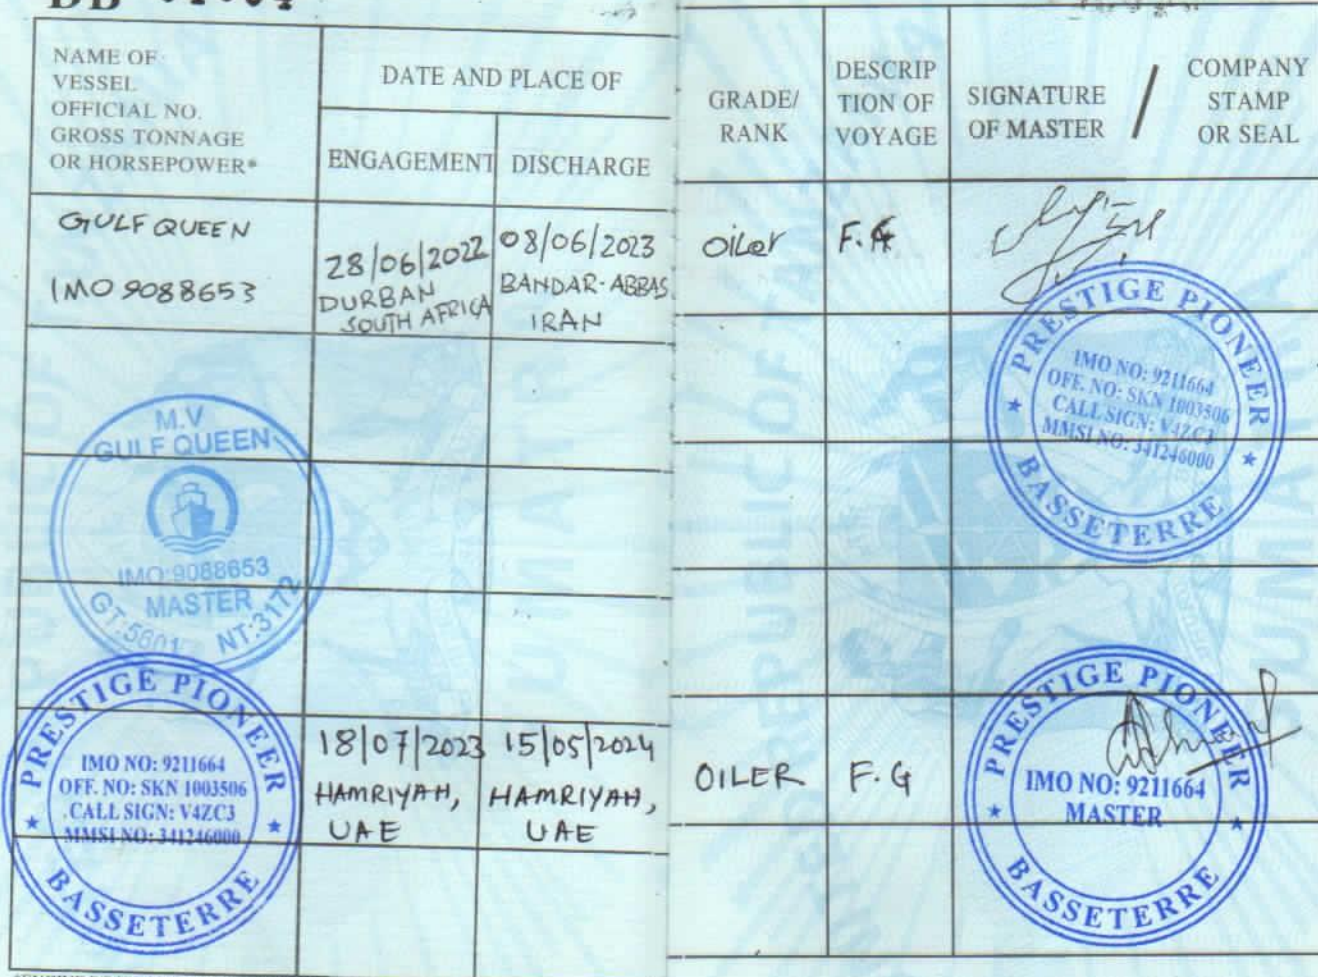 NAME OF
VESSEL
OFFICIAL NO.
GROSS TONNAGE
OR HORSEPOWER*
DATE AND PLACE OF
ENGAGEMENT
DISCHARGE
GRADE/
RANK
DESCRIP
TION OF
VOYAGE
SIGNATURE
OF MASTER
/
COMPANY
STAMP
OR SEAL
GULF QUEEN
IMO 9088653
28/06/2022
DURBAN
SOUTH AFRICA
08/06/2023
BANDAR-ABBAS
IRAN
OILER
F.G
PRESTIGE PIONEER
IMO NO: 9211664
OFF. NO: SKN 1003506
CALL SIGN: V4ZC3
MMSI NO: 341246000
BASSETERRE
M.V
GULF QUEEN
IMO:9088653
MASTER
GT:5601 NT:3172
PRESTIGE PIONEER
IMO NO: 9211664
OFF. NO: SKN 1003506
CALL SIGN: V4ZC3
MMSI NO: 341246000
BASSETERRE
18/07/2023
HAMRIYAH,
UAE
15/05/2024
HAMRIYAH,
UAE
OILER
F.G
PRESTIGE PIONEER
IMO NO: 9211664
MASTER
BASSETERRE